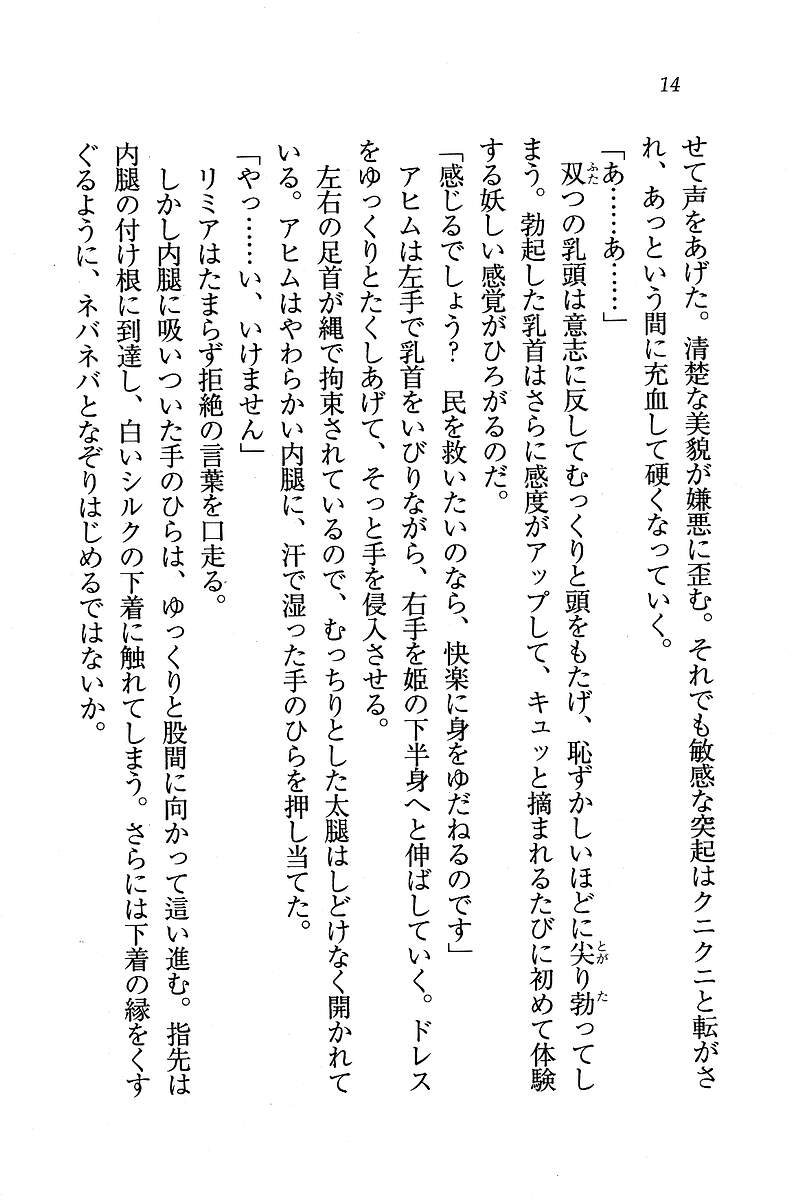 14
せて声をあげた。清楚な美貌が嫌悪に歪む。それでも敏感な突起はクニクニと転がさ
れ、あっという間に充血して硬くなっていく。
「あ……あ……」
双つの乳頭は意志に反してむっくりと頭をもたげ、恥ずかしいほどに尖り勃ってし
まう。勃起した乳首はさらに感度がアップして、キュッと摘まれるたびに初めて体験
する妖しい感覚がひろがるのだ。
「感じるでしょう？　民を救いたいのなら、快楽に身をゆだねるのです」
アヒムは左手で乳首をいびりながら、右手を姫の下半身へと伸ばしていく。ドレス
をゆっくりとたくしあげて、そっと手を侵入させる。
左右の足首が縄で拘束されているので、むっちりとした太腿はしどけなく開かれて
いる。アヒムはやわらかい内腿に、汗で湿った手のひらを押し当てた。
「やっ……い、いけません」
リミアはたまらず拒絶の言葉を口走る。
しかし内腿に吸いついた手のひらは、ゆっくりと股間に向かって這い進む。指先は
内腿の付け根に到達し、白いシルクの下着に触れてしまう。さらには下着の縁をくす
ぐるように、ネバネバとなぞりはじめるではないか。